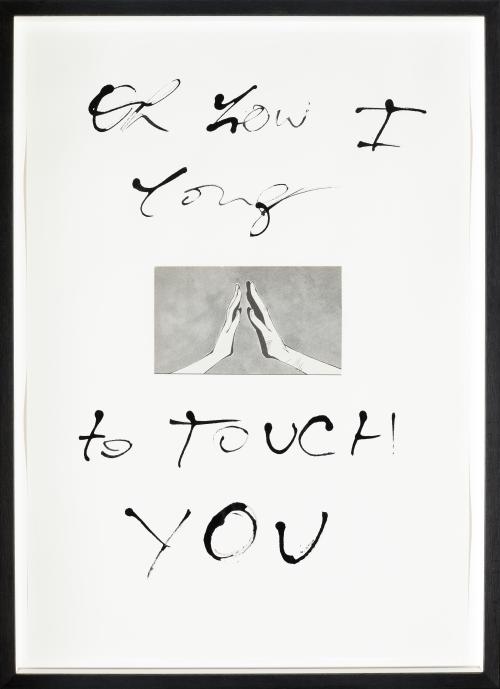 Oh how I
long
to TOUCH
YOU